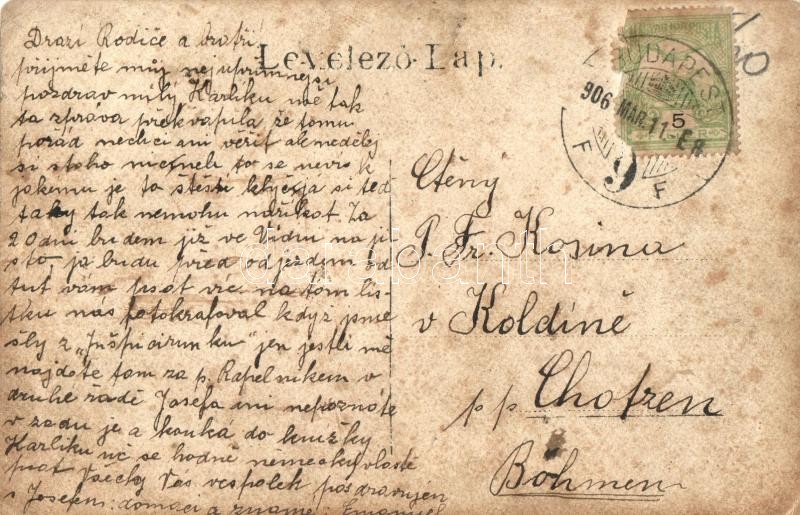 Levelező-Lap.
Drazí Rodiče a bratři
přijměte můj nejuprimnejsi
pozdrav milý Karliku mě tak
ta zpráva překvapila že tomu
pořád nechci ani věřit ak meděly
si stoho nicneli to se nevi k
jakemu je to štěsti kdyčjá si teď
taky tak nemohu nařikat Za
20 dni budem již ve Vidni na ji
sto ja budu před odjezdem od
tut vám psat vic. na tom lis-
tku nás fotokrafoval kdyz jsme
šly z „Inšpicirunku" jen jestli mě
najdete tam za p. Rapelnikem v
druhe řadě Josefa ani nepoznáte
v zadu je a kouká do knižky
Karliku uc se hodně německy vlastě
psat Všecky Vas vespolek pozdravujem
s Josefem: domaci a zname: Emanuel
BUDAPEST
906 MAR. 11-E8
9
F F
5
Ctěný
P. Fr. Kosina
v Koldíně
p p Chotzen
Böhmen